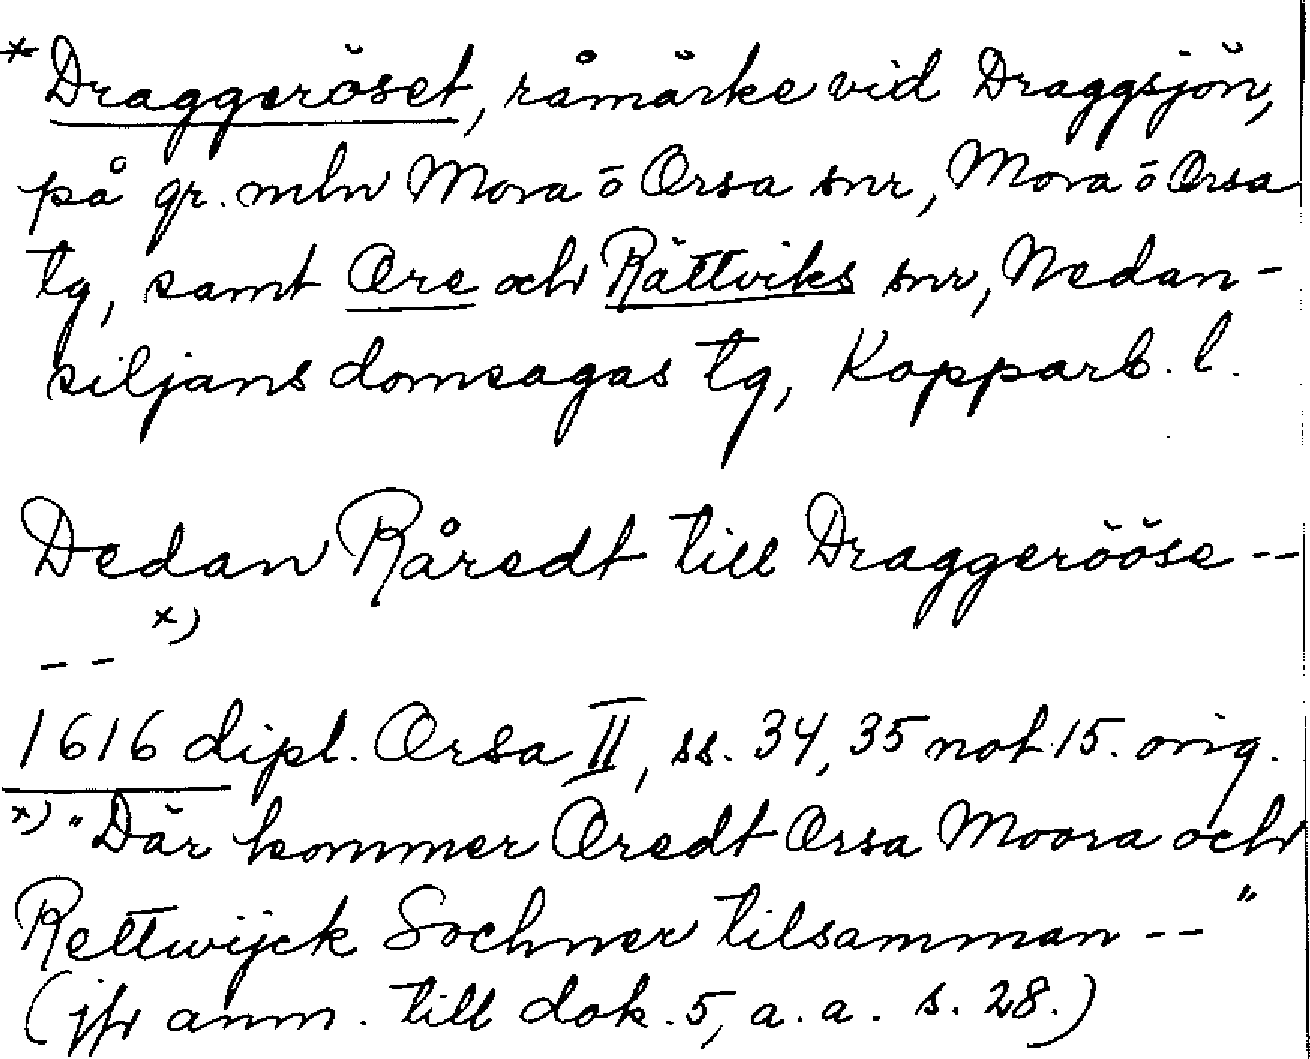 * Draggeröset, råmärke vid Draggsjön,
på gr. mln Mora o Orsa snr, Mora o Orsa
tg, samt Ore och Rättviks snr, Nedan-
siljans domsagas tg, Kopparb. l.
Dedan Råredt till Draggerööse --
-- x)
1616 dipl. Orsa II, ss. 34, 35 not 15. orig.
x) "Där kommer Oredt Orsa Moora och
Rettwijck Sochner tilsamman -- "
(jfr anm. till dok. 5, a. a. s. 28.)